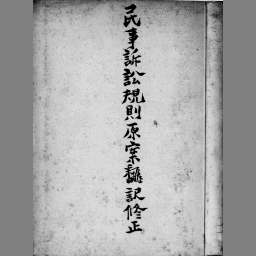 民事訴訟規則原案飜訳修正